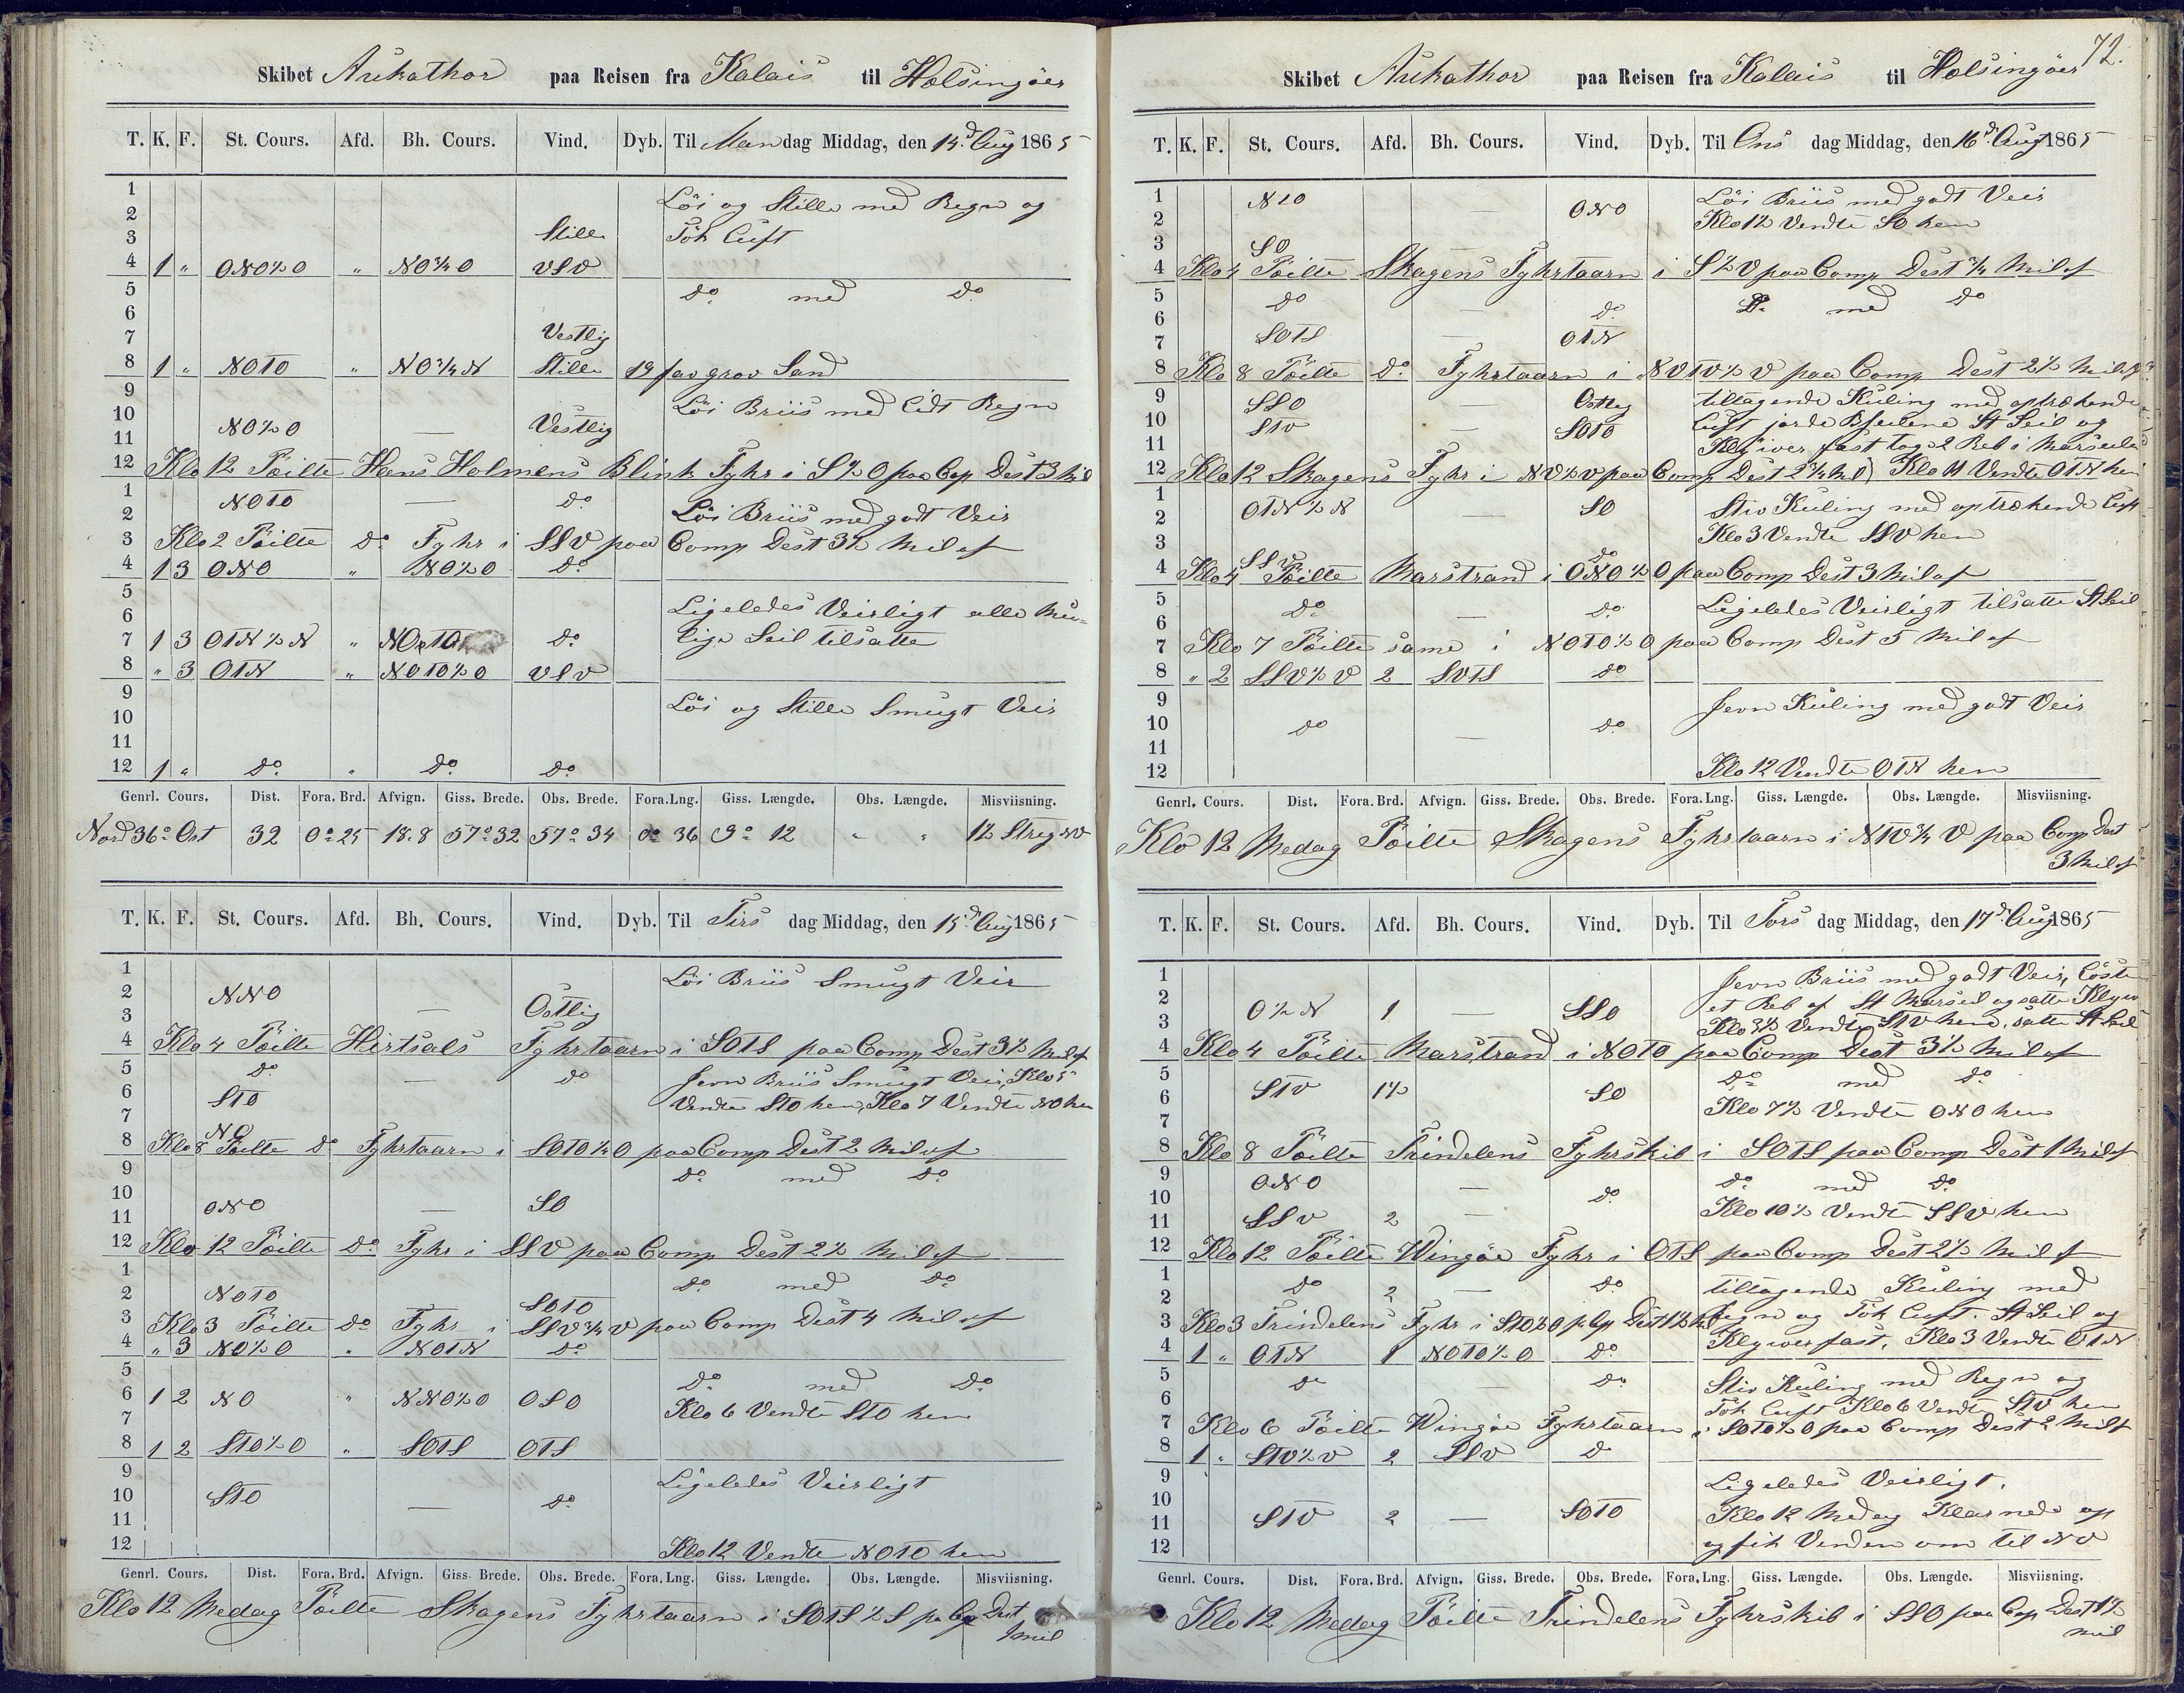 Skibet Aukathor paa Reisen fra Kalais til Holsingöer
T. K. F. St. Cours. Afd. Bh. Cours. Vind. Dyb. Til Mandag Middag, den 14d Aug 1865
1
2 Löi og Stille med Regn og
3 Stille Tök Luft
4 1 " ONO½O " NO¾O VSV
5 do med do
6
7 Vestlig
8 1 " NOTO " NO¾N Stille 19 fav grov Sand
9 Löi Briis med Lidt Regn
10 NO½O — Vestlig
11
12 Klo 12 Pöilte Hans Holmens Blink Fyhr i S½O paa Cop Dest 3 Mil
1 NOTO — do
2 Löi Briis med godt Veir
3 Klo 2 Pöilte do Fyhr i SSV paa Comp Dest 3½ Mil af
4 1 3 ONO " NO½O do
5
6 Ligeledes Veirligt alle Mu-
7 1 3 OTN½N " NOTO do lige Seil tilsatte
8 " 3 OTN " NOTO½O VSV
9 Löi og Stille Smugt Veir
10
11
12 1 " do " do do
Genrl. Cours. Dist. Fora. Brd. Afvign. Giss. Brede. Obs. Brede. Fora.Lng. Giss. Længde. Obs. Længde. Misviisning.
Nord 36o Ost 32 0o 25 18.8 57o 32 57o 34 0o 36 9o 12 " " 1½ Streg NV
T. K. F. St. Cours. Afd. Bh. Cours. Vind. Dyb. Til Tirsdag Middag, den 15d Aug 1865
1 Löi Briis Smugt Veir
2 NNO — Ostlig
3
4 Klo 4 Pöilte Hirtsals Fyhrtaarn i SOTS paa Comp Dest 3½ Mil af
5 do — do Jevn Briis Smugt Veir, Klo 5
6 STO Vendte STO hen, Klo 7 Vendte NO hen
7 NO
8 Klo 8 Pöilte do Fyhrtaarn i SOTO¼O paa Comp Dest 2 Mil af
9 do med do
10 ONO — SO
11
12 Klo 12 Pöilte do Fyhr i SSV paa Comp Dest 2½ Mil af
1 do med do
2 NOTO — SOTO
3 Klo 3 Pöilte do Fyhr i SSV¾V paa Comp Dest 4 Mil af
4 " 3 NO½O " NOTN do
5 do med do
6 1 2 NO " NNO½O OSO Klo 6 Vendte STO hen
7
8 1 2 STO½O " SOTS OTS
9 Ligeledes Veirligt
10 STO — do
11
12 Klo 12 Vendte NOTO hen
Genrl. Cours. Dist. Fora. Brd. Afvign. Giss. Brede. Obs. Brede. Fora. Lng. Giss. Længde. Obs. Længde. Misviisning.
Klo 12 Medag Pöilte Skagens Fyhrtaarn i SOTS½S pa Cop Dest
1 Mil
72.
Skibet Aukathor paa Reisen fra Kalais til Holsingöer
T. K. F. St. Cours. Afd. Bh. Cours. Vind. Dyb. Til Onsdag Middag, den 16d Aug 1865
1 NTO — ONO Löi Briis med godt Veir
2 Klo 12 Vendte SO hen
3 SO
4 Klo 4 Pöilte Skagens Fyhrtaarn i S½V paa Comp Dest ¾ Mil af
5 do — do do med do
6
7 SOTS OTN
8 Klo 8 Pöilte do Fyhrtaarn i NVTV½V paa Comp Dest 2½ Mil af
9 SSO Ostlig tiltagende Kuling med optrækende
10 STV — SOTO Luft jorde Bseilene St Seil og
11 Klyiver fast tog 2 Reb i Marseilene
12 Klo 12 Skagens Fyhr i NV½V paa Comp Dest 2¾ Mil, Klo 11 Vendte OTN hen
1 OTN½N — SO Stiv Kuling med optrækende Luft
2
3 SSV do Klo 3 Vendte SSV hen
4 Klo 4 Pöilte Marstrand i ONO½O paa Comp Dest 3 Mil af
5 do — do Ligeledes Veirligt tilsatte St Seil
6
7 Klo 7 Pöilte same i NOTO½O paa Comp Dest 5 Mil af
8 " 2 SSV½V 2 SVTS do
9 Jevn Kuling med godt Veir
10 do — do
11
12 Klo 12 Vendte OTN hen
Genrl. Cours. Dist. Fora. Brd. Afvign. Giss. Brede. Obs. Brede. Fora. Lng. Giss. Længde. Obs. Længde. Misviisning.
Klo 12 Medag Pöilte Skagens Fyhrtaarn i NTV¾V paa Comp Dest
3 Mil af
T. K. F. St. Cours. Afd. Bh. Cours. Vind. Dyb. Til Torsdag Middag, den 17d Aug 1865
1 Jevn Briis med godt Veir, Löste
2 O½N 1 — SSO et Reb af St Marseil og satte Klyver
3 Klo 3½ Vendte STV hen, satte St Seil
4 Klo 4 Pöilte Marstrand i NOTO paa Comp Dest 3½ Mil af
5 do med do
6 STV 1½ SO Klo 7½ Vendte ONO hen
7
8 Klo 8 Pöilte Trindelens Fyhrskib i SOTS paa Comp Dest 1 Mil af
9 ONO — do do med do
10 Klo 10½ Vendte SSV hen
11 SSV 2 —
12 Klo 12 Pöilte Wingöe Fyhr i OTS paa Comp Dest 2½ Mil af
1 do 2 — do tiltagende Kuling med
2
3 Klo 3 Trindelens Fyhr i STO½O p Cp Dest 1½ Mil Regn og Tök Luft. St Seil og
4 1 " OTN 1 NOTO½O do Klywer fast, Klo 3 Vendte OTN
5 do — do Stiv Kuling med Regn og
6 Tök Luft Klo 6 Vendte STV hen
7 Klo 6 Pöilte Wingöe Fyhrtaarn i SOTO½O paa Comp Dest 2 Mil af
8 1 " STV½V 2 SSV do
9 Ligeledes Veirligt.
10 Klo 12 Medag Klarnede op
11 STV 2 — SOTO
12 og fik Vinden om til NV
Genrl. Cours. Dist. Fora. Brd. Afvign. Giss. Brede. Obs. Brede. Fora. Lng. Giss. Længde. Obs. Længde. Misviisning.
Klo 12 Medag Pöilte Trindelens Fyhrskib i SSO paa Cop Dest 1½
Mil